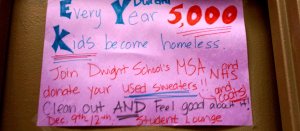 Every Year 5,000
Kids become homeless.
Join Dwight School's MSA and NHS
donate your used sweaters!! and coats!
Clean out AND Feel good about it
Dec. 9th 12th Student Lounge